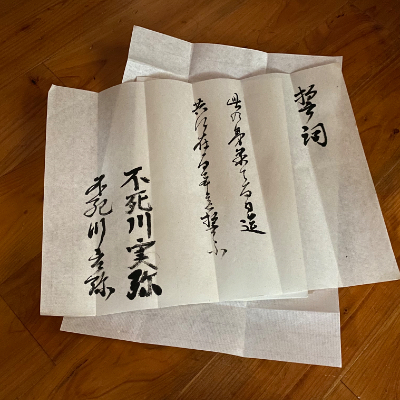 誓詞
此の身果てる日迄
共に在る事を誓ふ
不死川実弥
不死川玄弥